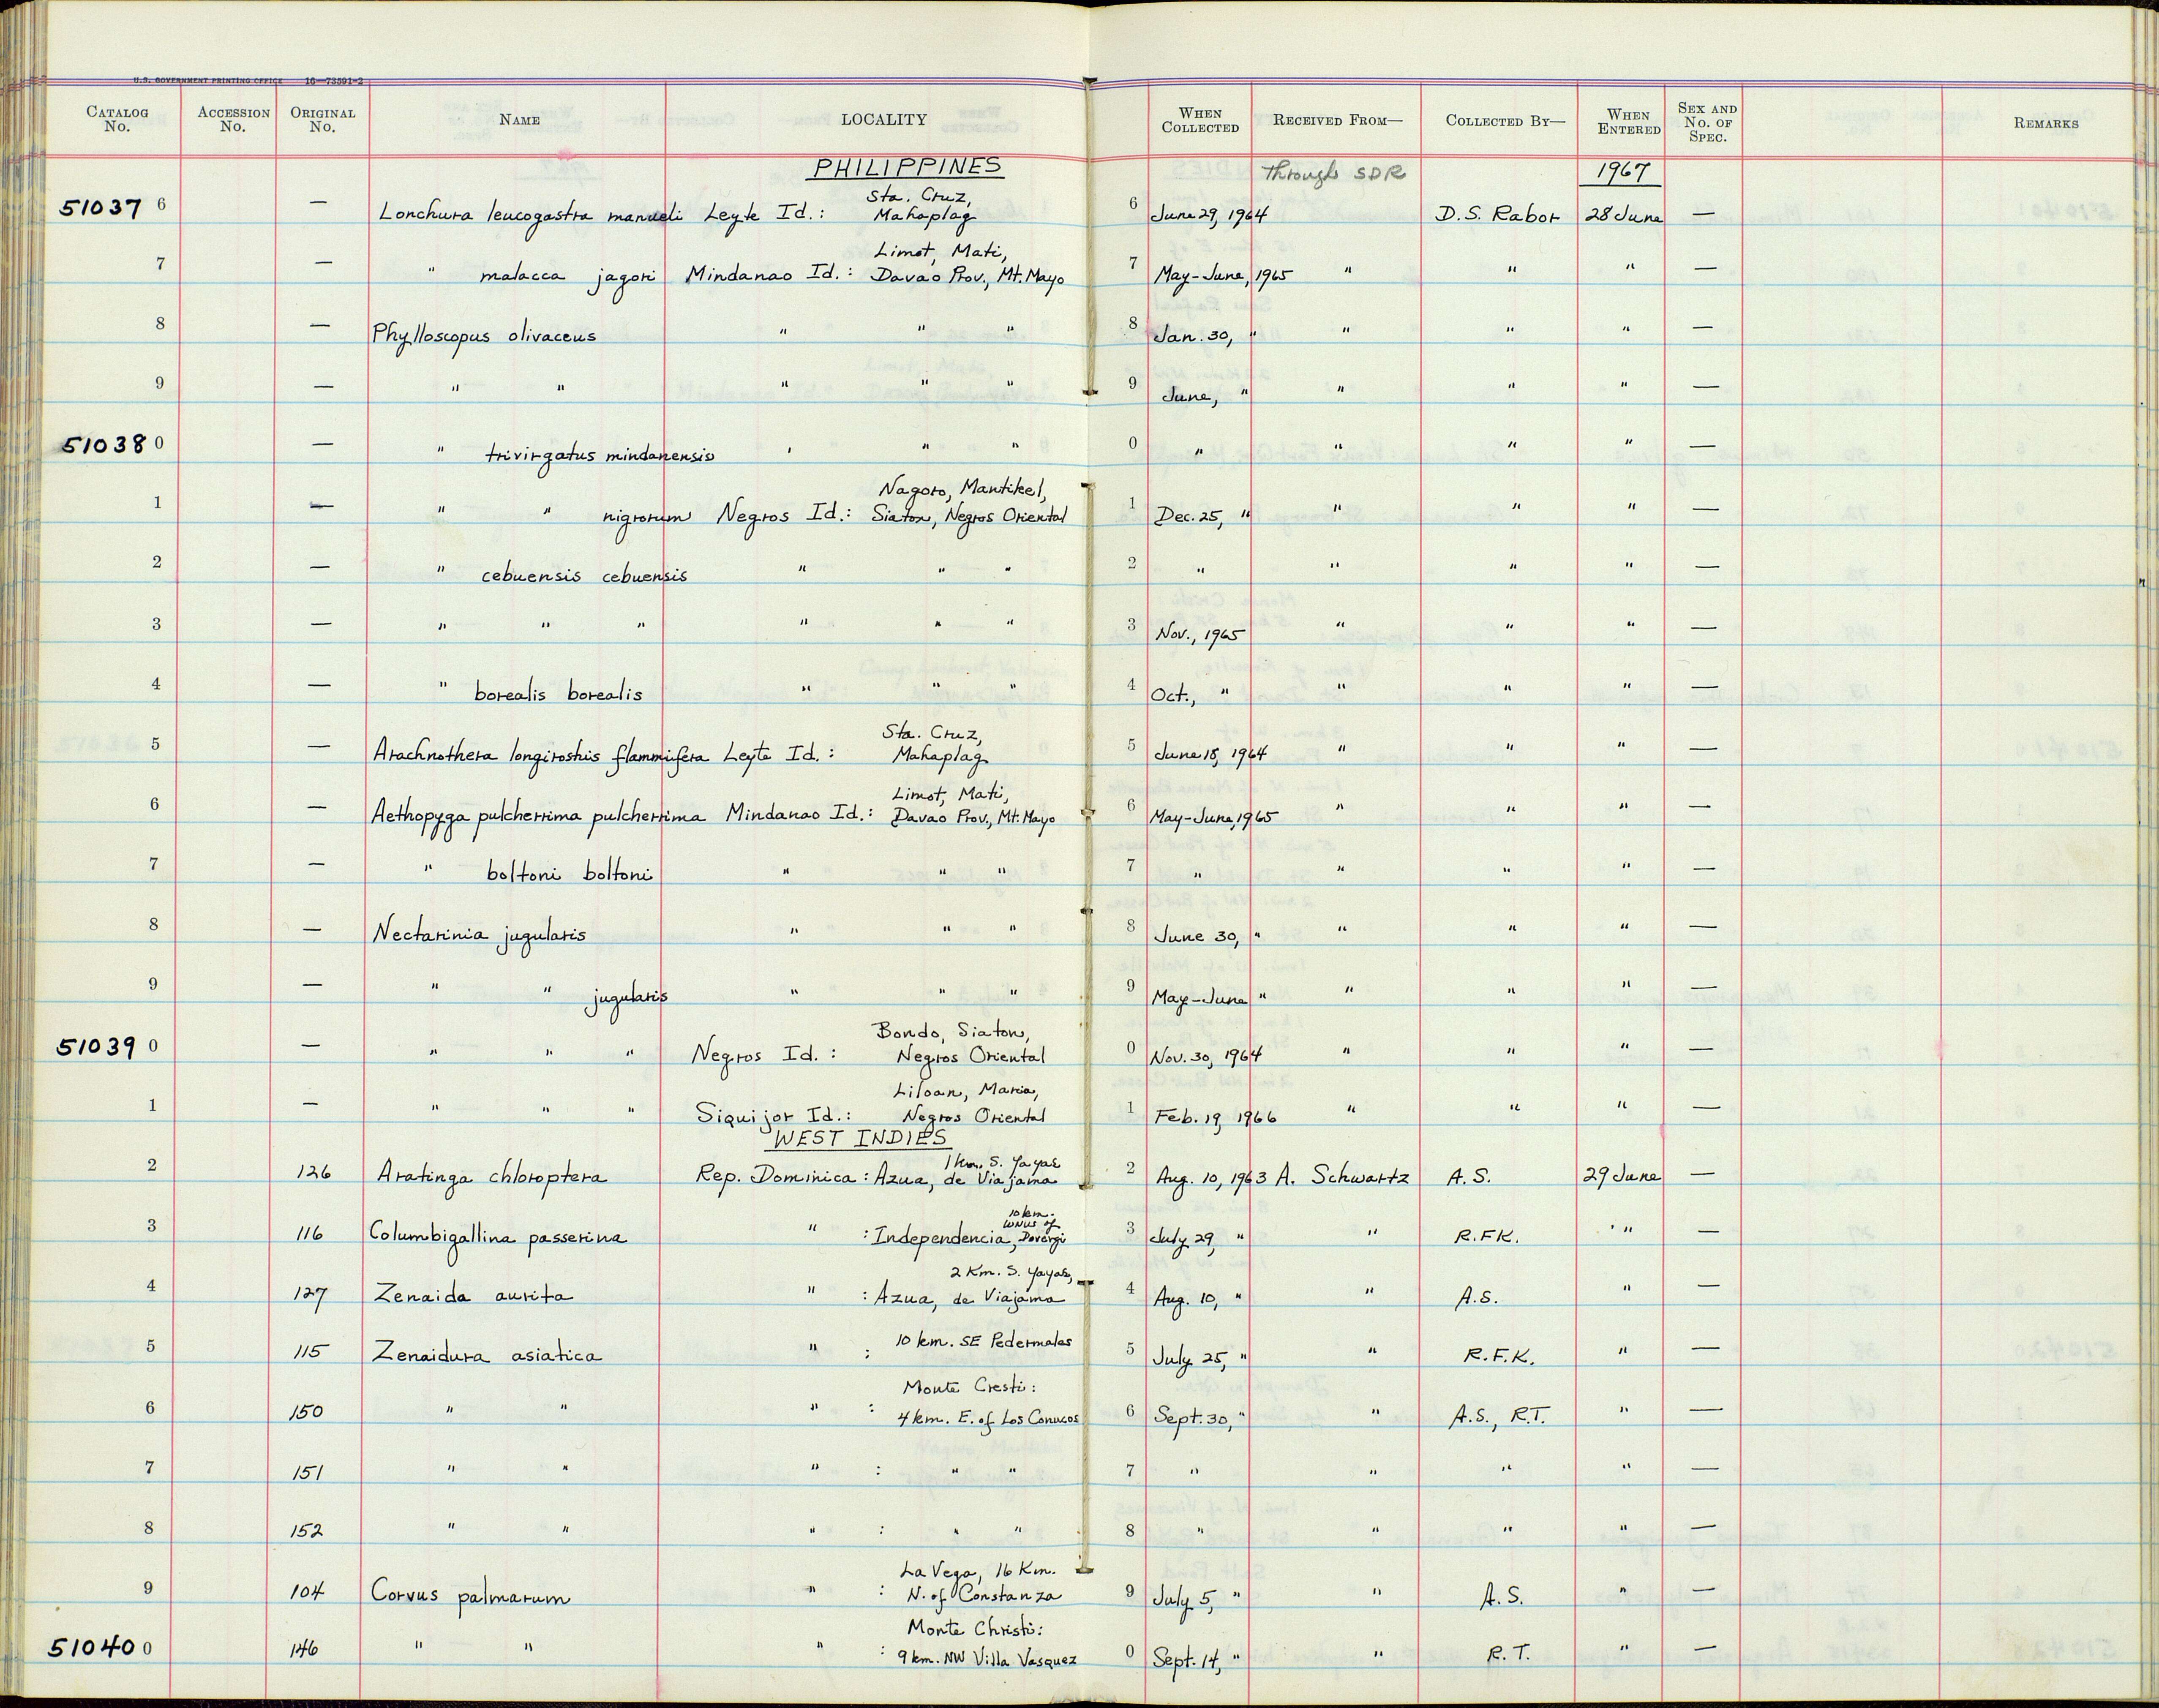 U.S. GOVERNMENT PRINTING OFFICE 16—73591-2
CATALOG No. ACCESSION No. ORIGINAL No. NAME LOCALITY WHEN COLLECTED RECEIVED FROM— COLLECTED BY— WHEN ENTERED SEX AND No. OF SPEC. REMARKS
PHILIPPINES Through SDR 1967
51037 6 — Lonchura leucogastra manueli Leyte Id.: Sta. Cruz, Mahaplag 6 June 29, 1964 D.S. Rabor 28 June —
7 — " malacca jagori Mindanao Id.: Limot, Mati, Davao Prov., Mt. Mayo 7 May-June, 1965 " " " —
8 — Phylloscopus olivaceus " " " 8 Jan. 30, " " " " —
9 — " " " " " 9 June, " " " " —
51038 0 — " trivirgatus mindanensis " " " 0 " " " " —
1 — " " nigrorum Negros Id.: Nagoro, Mantikel, Siaton, Negros Oriental 1 Dec. 25, " " " " —
2 — " cebuensis cebuensis " " " 2 " " " " —
3 — " " " " " " 3 Nov., 1965 " " " —
4 — " borealis borealis " " " 4 Oct., " " " " —
5 — Arachnothera longirostris flammifera Leyte Id.: Sta. Cruz, Mahaplag 5 June 18, 1964 " " " —
6 — Aethopyga pulcherrima pulcherrima Mindanao Id.: Limot, Mati, Davao Prov., Mt. Mayo 6 May-June, 1965 " " " —
7 — " boltoni boltoni " " " 7 " " " " —
8 — Nectarinia jugularis " " " 8 June 30, " " " " —
9 — " " jugularis " " " 9 May-June " " " " —
51039 0 — " " " Negros Id.: Bondo, Siaton, Negros Oriental 0 Nov. 30, 1964 " " " —
1 — " " " Siquijor Id.: Liloan, Maria, Negros Oriental 1 Feb. 19, 1966 " " " —
WEST INDIES
2 126 Aratinga chloroptera Rep. Dominica : Azua, 1 km. S. Yayas de Viajama 2 Aug. 10, 1963 A. Schwartz A.S. 29 June —
3 116 Columbigallina passerina " : Independencia, 10 km. of 3 July 29, " " R.F.K. " —
4 127 Zenaida aurita " : Azua, 2 Km. S. Yayas, de Viajama 4 Aug. 10, " " A.S. " —
5 115 Zenaidura asiatica " : 10 km. SE Pedernales 5 July 25, " " R.F.K. " —
6 150 " " " : Monte Cresti: 4 km. E. of Los Conucos 6 Sept. 30, " " A.S., R.T. " —
7 151 " " " : " " 7 " " " " —
8 152 " " " : " " 8 " " " " —
9 104 Corvus palmarum " : La Vega, 16 Km. N. of Constanza 9 July 5, " " A.S. " —
51040 0 146 " " " : Monte Christi: 9 km. NW Villa Vasquez 0 Sept. 14, " " R.T. " —